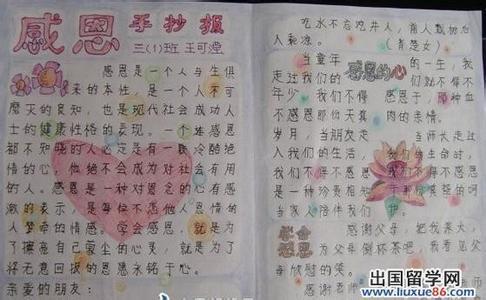 感恩 手抄报
三(1)班 王可煌
感恩是一个人与生俱
来的本性，是一个人不可
磨灭的良知，也是现代社会成功人
士的健康性格的表现。一个连感恩
都不知晓的人必定是有一颗冷酷绝
情的心，他绝不会成为对社会有用
的人。感恩是一种对恩惠的心有感
激的表示，是每位不忘他人恩情的
人萦牵的情感。学会感恩，就是为
了擦亮自己蒙尘的心灵，就是为了
将无意回报的恩惠永铭于心。
亲爱的朋友：
吃水不忘挖井人，前人栽树后
人乘凉。（青楚女）
感恩的心
当童年 的一生，我
走过我们的 们就不得不
年少，我们不得 感恩于，那种血
不感恩那份天真 肉的亲情。
岁月，当朋友走 当师长走过
入我们的生活， 我们的生命时，
我们不得不感恩 我们不得不感恩
是一种珍贵相 于那谆谆教诲的呵
当家人陪伴我们
学会感恩
感谢父母，把我养大，
为父母倒杯茶吧，我看见父
母欣慰的笑。
感谢老师
出国留学网
www.liuxue86.com